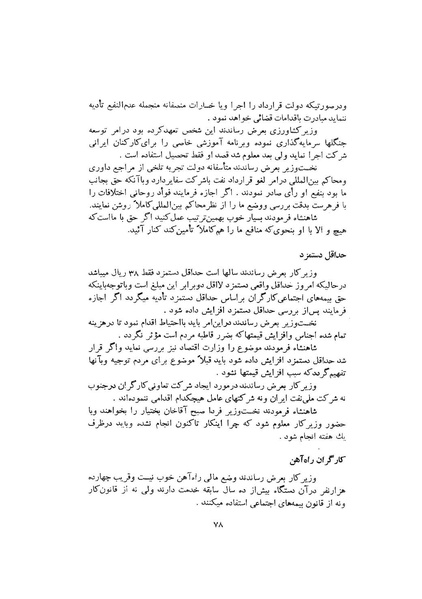 ودرصورتیکه دولت قرارداد را اجرا ویا خسارات منصفانه منجمله عدم‌النفع تأدیه
ننماید مبادرت باقدامات قضائی خواهد نمود .
وزیر کشاورزی بعرض رساندند این شخص تعهد کرده بود درامر توسعه
جنگلها سرمایه‌گذاری نموده وبرنامه آموزشی خاصی را برای کارکنان ایرانی
شرکت اجرا نماید ولی بعد معلوم شد قصد او فقط تحصیل استفاده است .
نخست‌وزیر بعرض رساندند متأسفانه دولت تجربه تلخی از مراجع داوری
ومحاکم بین‌المللی درامر لغو قرارداد نفت باشرکت سفایر دارد وباآنکه حق بجانب
ما بود بنفع او رأی صادر نمودند . اگر اجازه فرمایند فوأد روحانی اختلافات را
با فرهرست بدقت بررسی ووضع ما را از نظر محاکم بین‌المللی کاملاً روشن نمایند.
شاهنشاه فرمودند بسیار خوب بهمین‌ترتیب عمل کنید اگر حق با ما است که
هیچ و الا با او بنحوی که منافع ما را هم کاملاً تأمین کند کنار آئید.
حداقل دستمزد
وزیر کار بعرض رساندند سالها است حداقل دستمزد فقط ۳۸ ریال میباشد
درحالیکه امروز حداقل واقعی دستمزد لااقل دوبرابر این مبلغ است وباتوجه باینکه
حق بیمه‌های اجتماعی کارگران براساس حداقل دستمزد تأدیه میگردد اگر اجازه
فرمایند پس از بررسی حداقل دستمزد افزایش داده شود .
نخست‌وزیر بعرض رساندند دراین امر باید بااحتیاط اقدام نمود تا درهزینه
تمام شده اجناس وافزایش قیمتها که بضرر قاطبه مردم است مؤثر نگردد .
شاهنشاه فرمودند موضوع را وزارت اقتصاد نیز بررسی نماید واگر قرار
شد حداقل دستمزد افزایش داده شود باید قبلاً موضوع برای مردم توجیه وبآنها
تفهیم گردد که سبب افزایش قیمتها نشود .
وزیر کار بعرض رساندند درمورد ایجاد شرکت تعاونی کارگران درجنوب
نه شرکت ملی نفت ایران ونه شرکتهای عامل هیچکدام اقدامی ننموده‌اند .
شاهنشاه فرمودند نخست‌وزیر فردا صبح آقاخان بختیار را بخواهند وبا
حضور وزیر کار معلوم شود که چرا اینکار تاکنون انجام نشده وباید درظرف
یك هفته انجام شود .
کارگران راه‌آهن
وزیر کار بعرض رساندند وضع مالی راه‌آهن خوب نیست وقریب چهارده
هزارنفر درآن دستگاه بیش از ده سال سابقه خدمت دارند ولی نه از قانون کار
ونه از قانون بیمه‌های اجتماعی استفاده میکنند .
۷۸